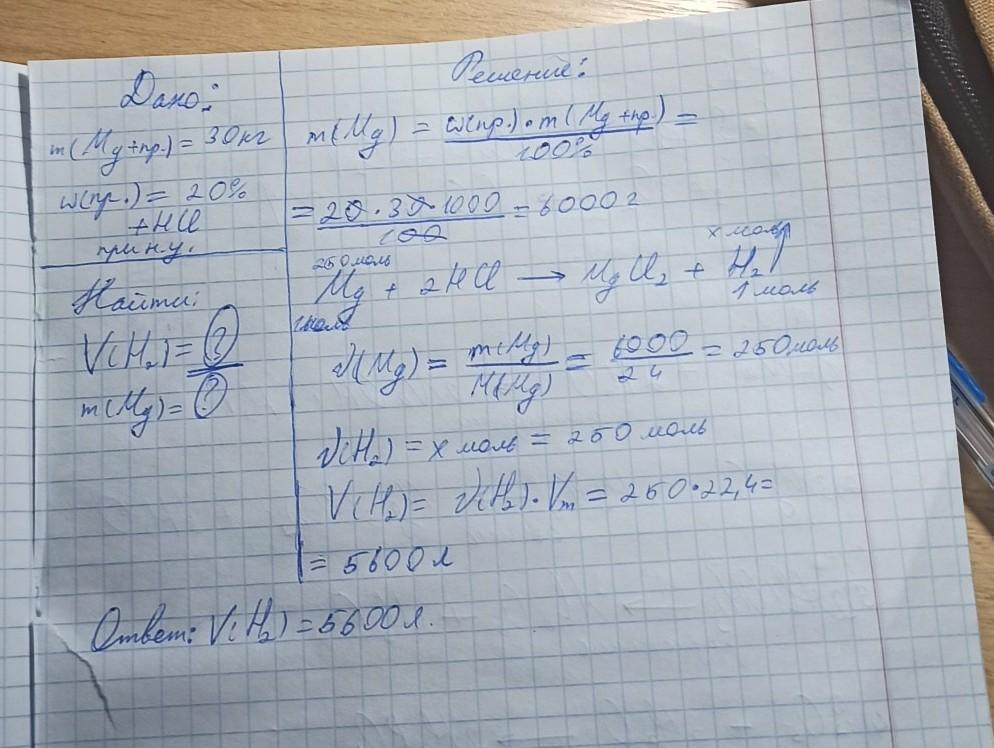 Дано:
m(Mg+пр.) = 30кг
w(пр.) = 20%
+HCl
при н.у.
Найти:
V(H₂) = ?
m(Mg) = ?
Решение:
m(Mg) = w(пр.)·m(Mg+пр.) / 100% =
= 20·30·1000 / 100 = 6000 г
250 моль x моль
Mg + 2HCl → MgCl₂ + H₂↑
1 моль 1 моль
ν(Mg) = m(Mg) / M(Mg) = 6000 / 24 = 250 моль
ν(H₂) = x моль = 250 моль
V(H₂) = ν(H₂)·Vm = 250·22,4 =
= 5600 л
Ответ: V(H₂) = 5600 л.